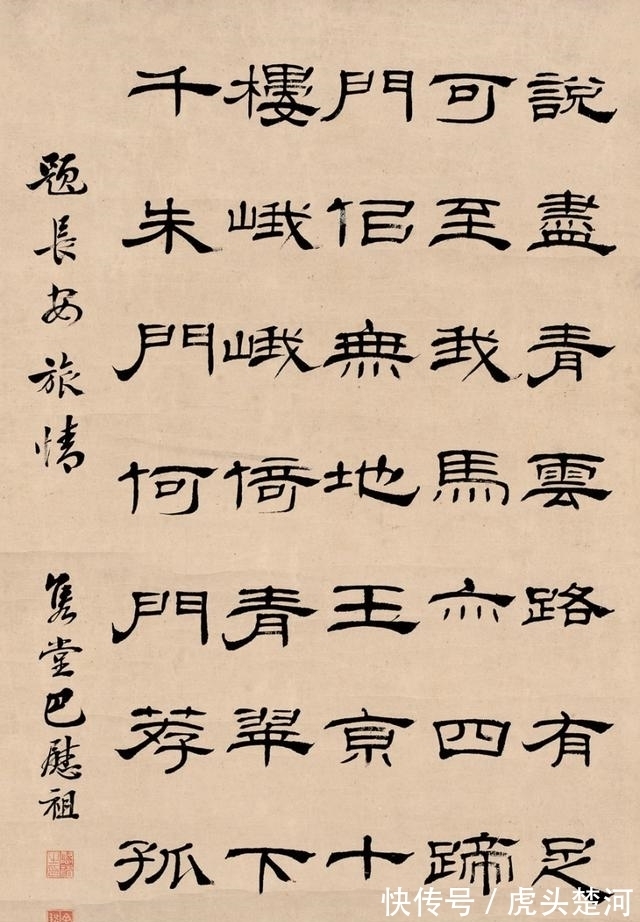 說盡青雲路有足
可至我馬亦四蹄
門佀無地王京十
樓峨峨倚青翠下
千朱門何門荐孤
題長安旅情
雋堂巴慰祖
快传号/虎头楚河